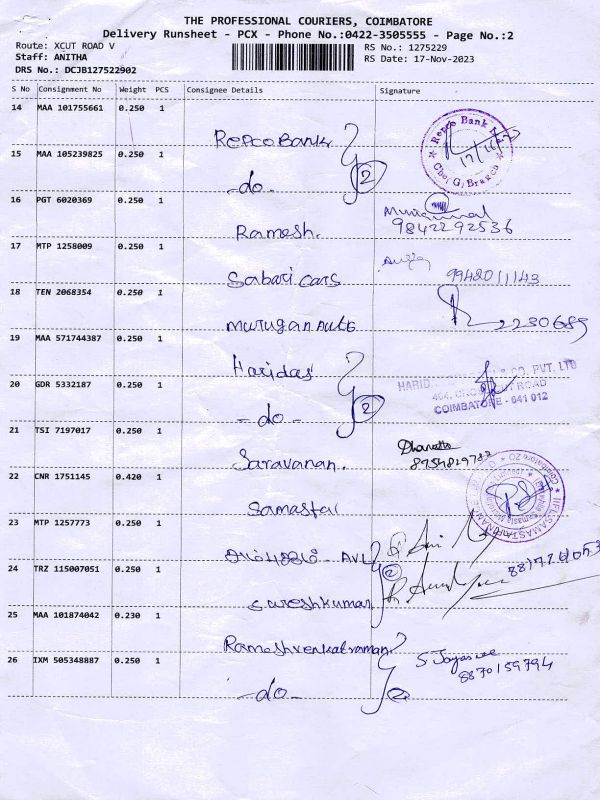 THE PROFESSIONAL COURIERS, COIMBATORE
Delivery Runsheet - PCX - Phone No.:0422-3505555 - Page No.:2
Route: XCUT ROAD V RS No.: 1275229
Staff: ANITHA RS Date: 17-Nov-2023
DRS No.: DCJB127522902
S No Consignment No Weight PCS Consignee Details Signature
14 MAA 101755661 0.250 1
Repco Bank
Repco Bank
17/11/23
Cbe (G) Branch
15 MAA 105239825 0.250 1
-do- 2
16 PGT 6020369 0.250 1
Ramesh. 9842292536
17 MTP 1258009 0.250 1
Sabari cars 9942011143
18 TEN 2068354 0.250 1
murugan Auto 2230689
19 MAA 571744387 0.250 1
Haridas
& CO. PVT. LTD
ROAD
COIMBATORE - 641 012
20 GDR 5332187 0.250 1
-do- 2
21 TSI 7197017 0.250 1
Saravanan.
22 CNR 1751145 0.420 1
Samasta
23 MTP 1257773 0.250 1
AVL
24 TRZ 115007051 0.250 1
2
Sureshkumar
25 MAA 101874042 0.230 1
Rameshvenkatraman
26 IXM 505348887 0.250 1
S Jayasree
8870159794
-do- 2